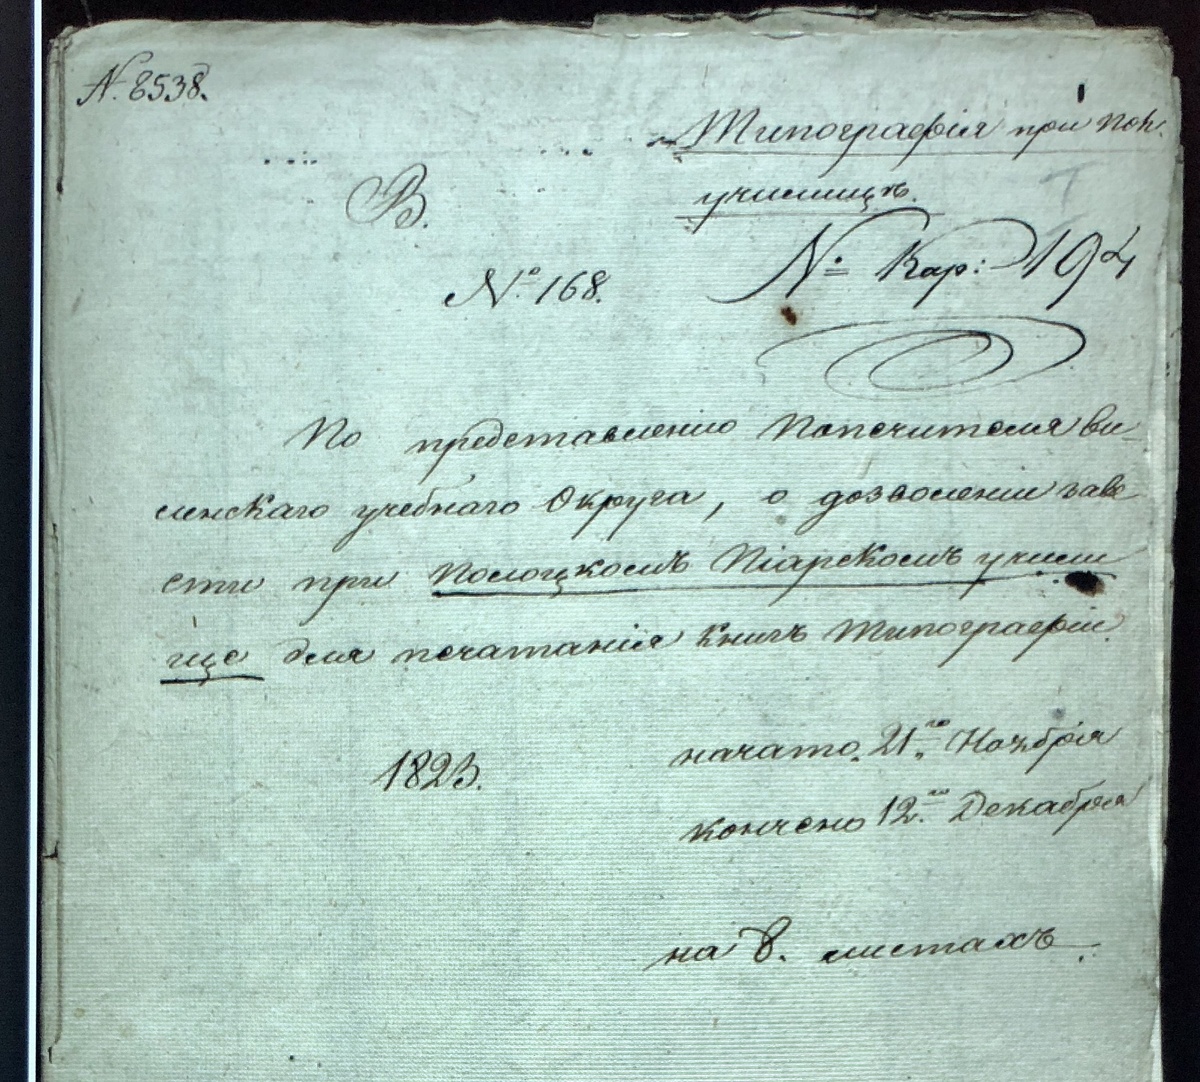 N. 8538.
Типографія при Пол.
училищѣ.
В.
№ Кар: 194
№ 168.
По представленію Попечителя Ви-
ленскаго учебнаго Округа, о дозволеніи заве
сти при Полоцкомъ Піарскомъ учили
ще для печатанія книгъ Типографіи.
1823.
начато 21го Ноября
кончено 12го Декабря
на 8. листахъ.